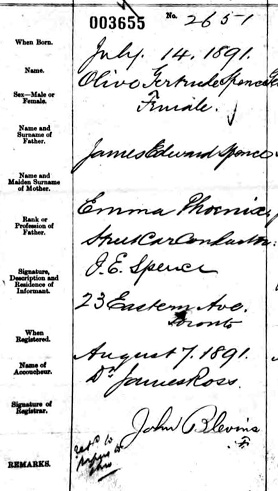 003655 No. 2651
When Born. July. 14. 1891.
Name. Olive Gertrude Spence
Sex—Male or Female. Female.
Name and Surname of Father. James Edward Spence
Name and Maiden Surname of Mother. Emma Phoenix
Rank or Profession of Father. Street Car Conductor.
Signature, Description and Residence of Informant. J. E. Spence
23 Eastern Ave.
Toronto
When Registered. August 7. 1891.
Name of Accoucheur. Dr James Ross.
Signature of Registrar. John Blevins
REMARKS.